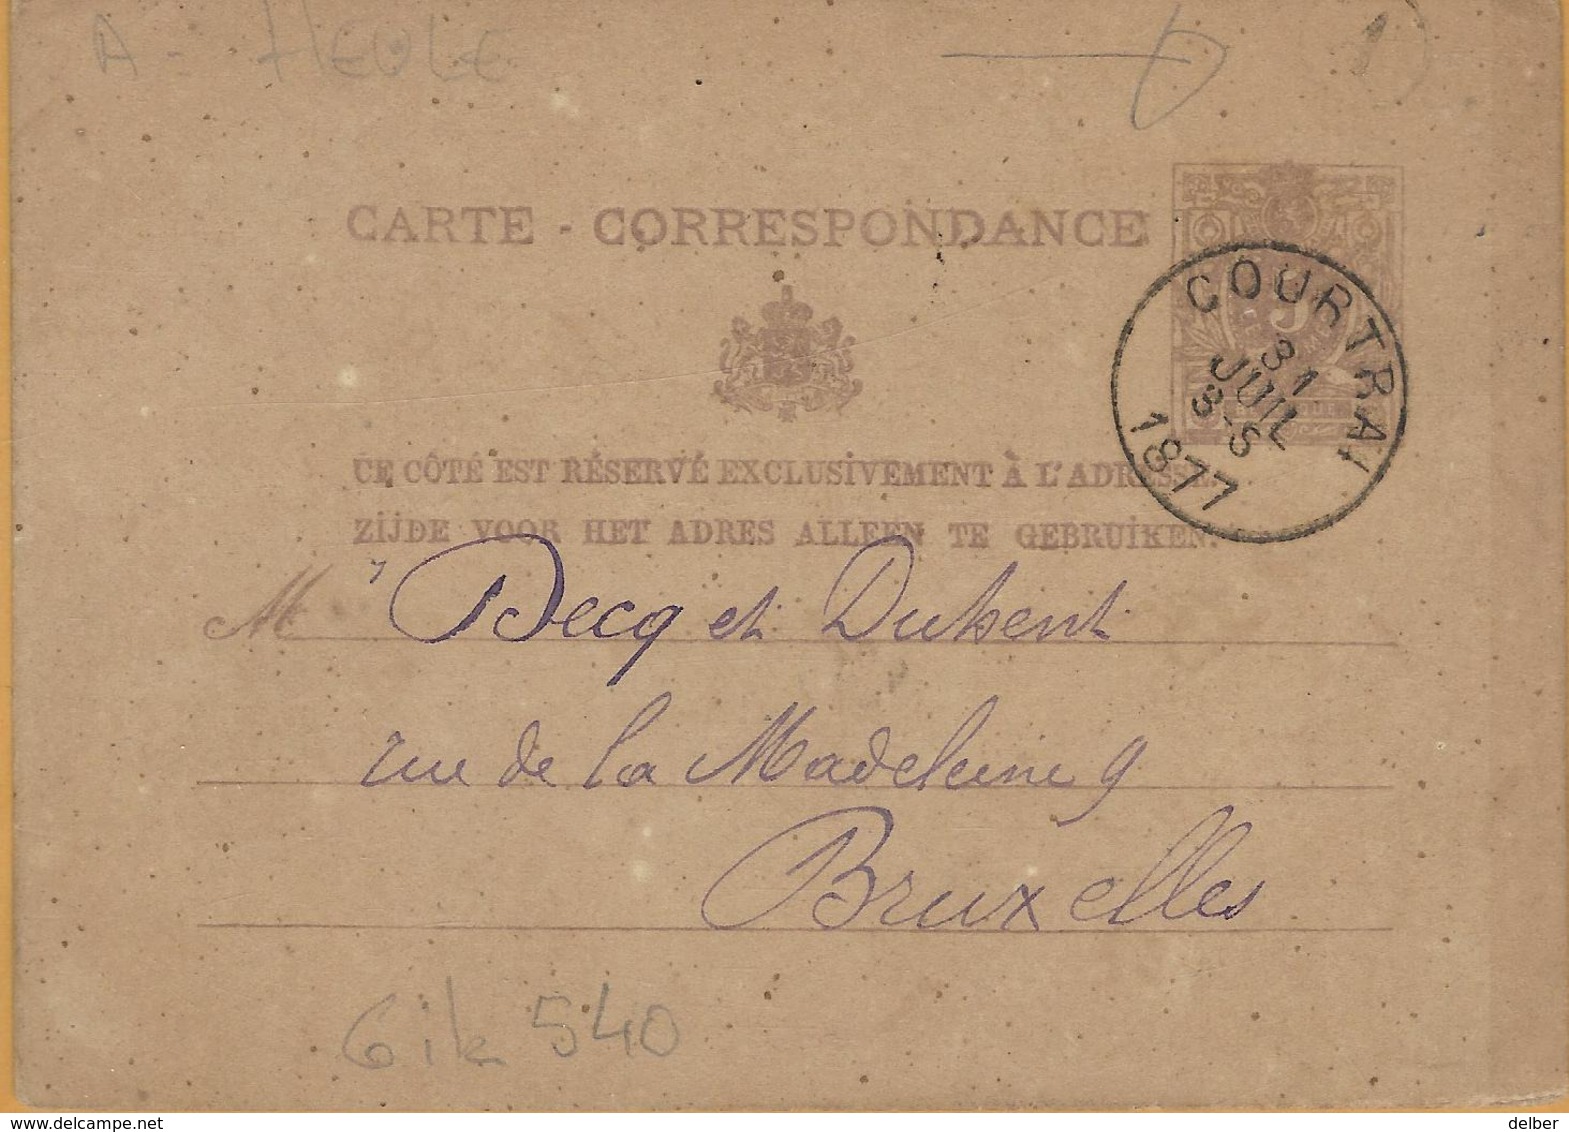 A - HEULE
1
CARTE - CORRESPONDANCE
5
COURTRAI
31
JUIL
3-S
1877
CE CÔTÉ EST RÉSERVÉ EXCLUSIVEMENT À L'ADRESSE.
ZIJDE VOOR HET ADRES ALLEEN TE GEBRUIKEN.
M Becq et Dubent
rue de la Madeleine 9
Bruxelles
540
www.delcampe.net
delber